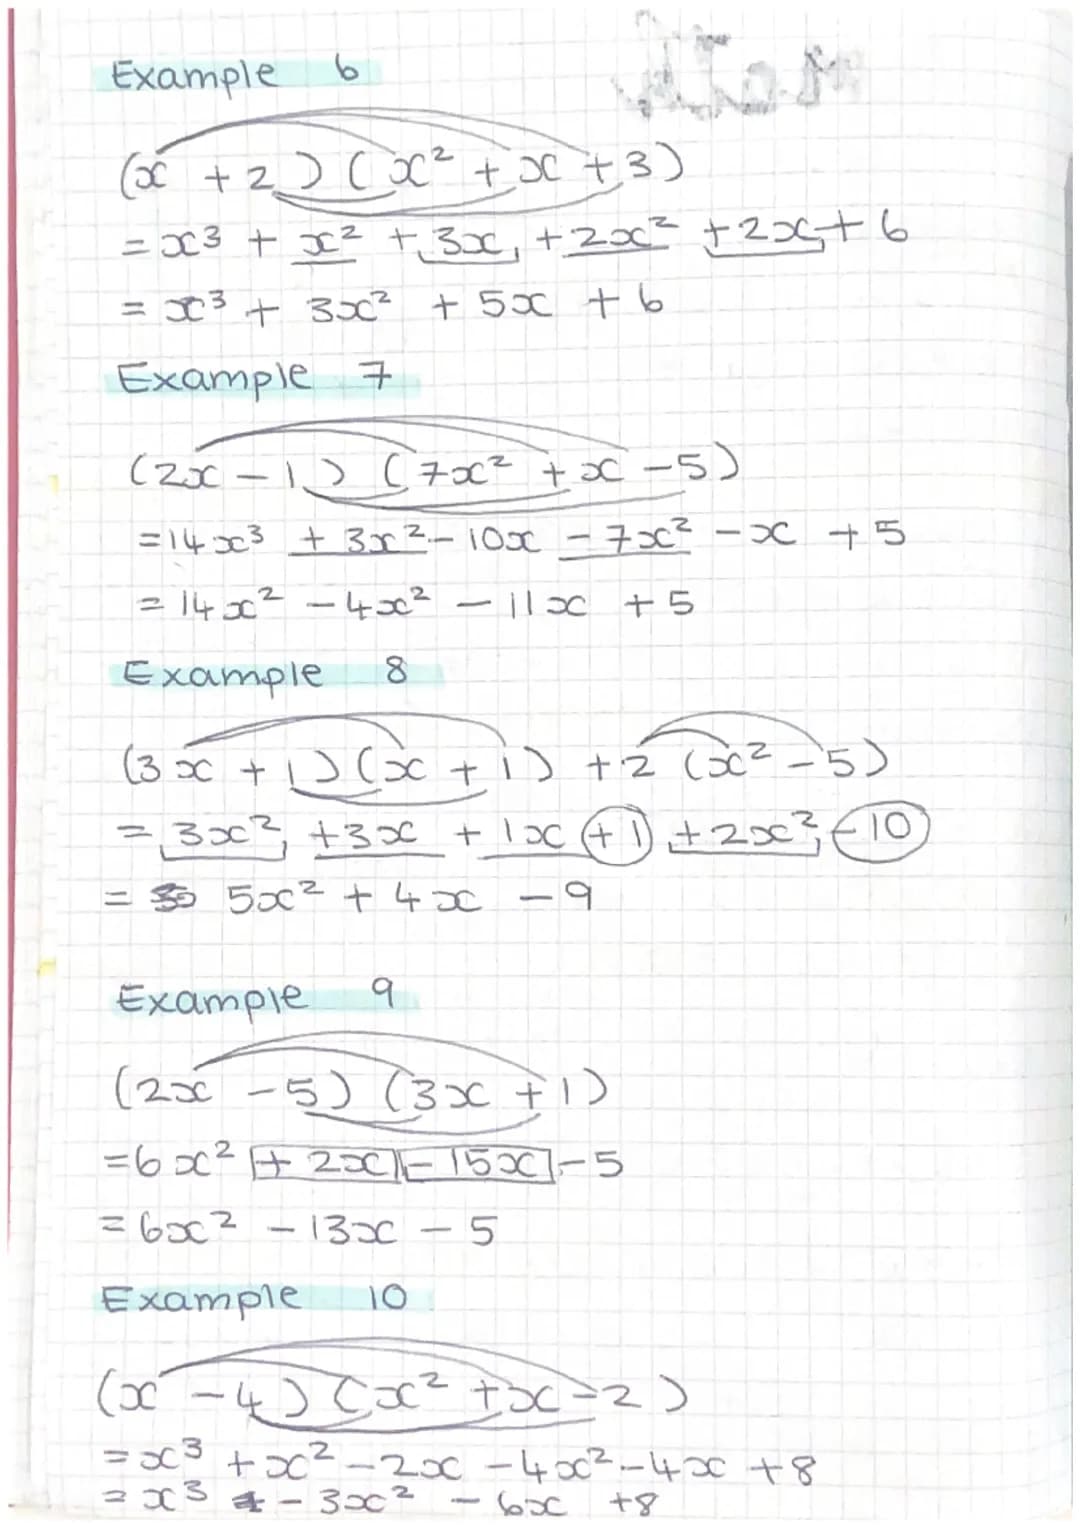 Example 6
(x + 2) (x² + x + 3)
= x³ + x² + 3x + 2x² + 2x + 6
= x³ + 3x² + 5x + 6
Example 7
(2x - 1) (7x² + x - 5)
= 14x³ + 3x² - 10x - 7x² - x + 5
= 14x² - 4x² - 11x + 5
Example 8
(3x + 1) (x + 1) + 2 (x² - 5)
= 3x² + 3x + 1x + 1 + 2x² - 10
= 5x² + 4x - 9
Example 9
(2x - 5) (3x + 1)
= 6x² + 2x - 15x - 5
= 6x² - 13x - 5
Example 10
(x - 4) (x² + x - 2)
= x³ + x² - 2x - 4x² - 4x + 8
= x³ - 3x² - 6x + 8